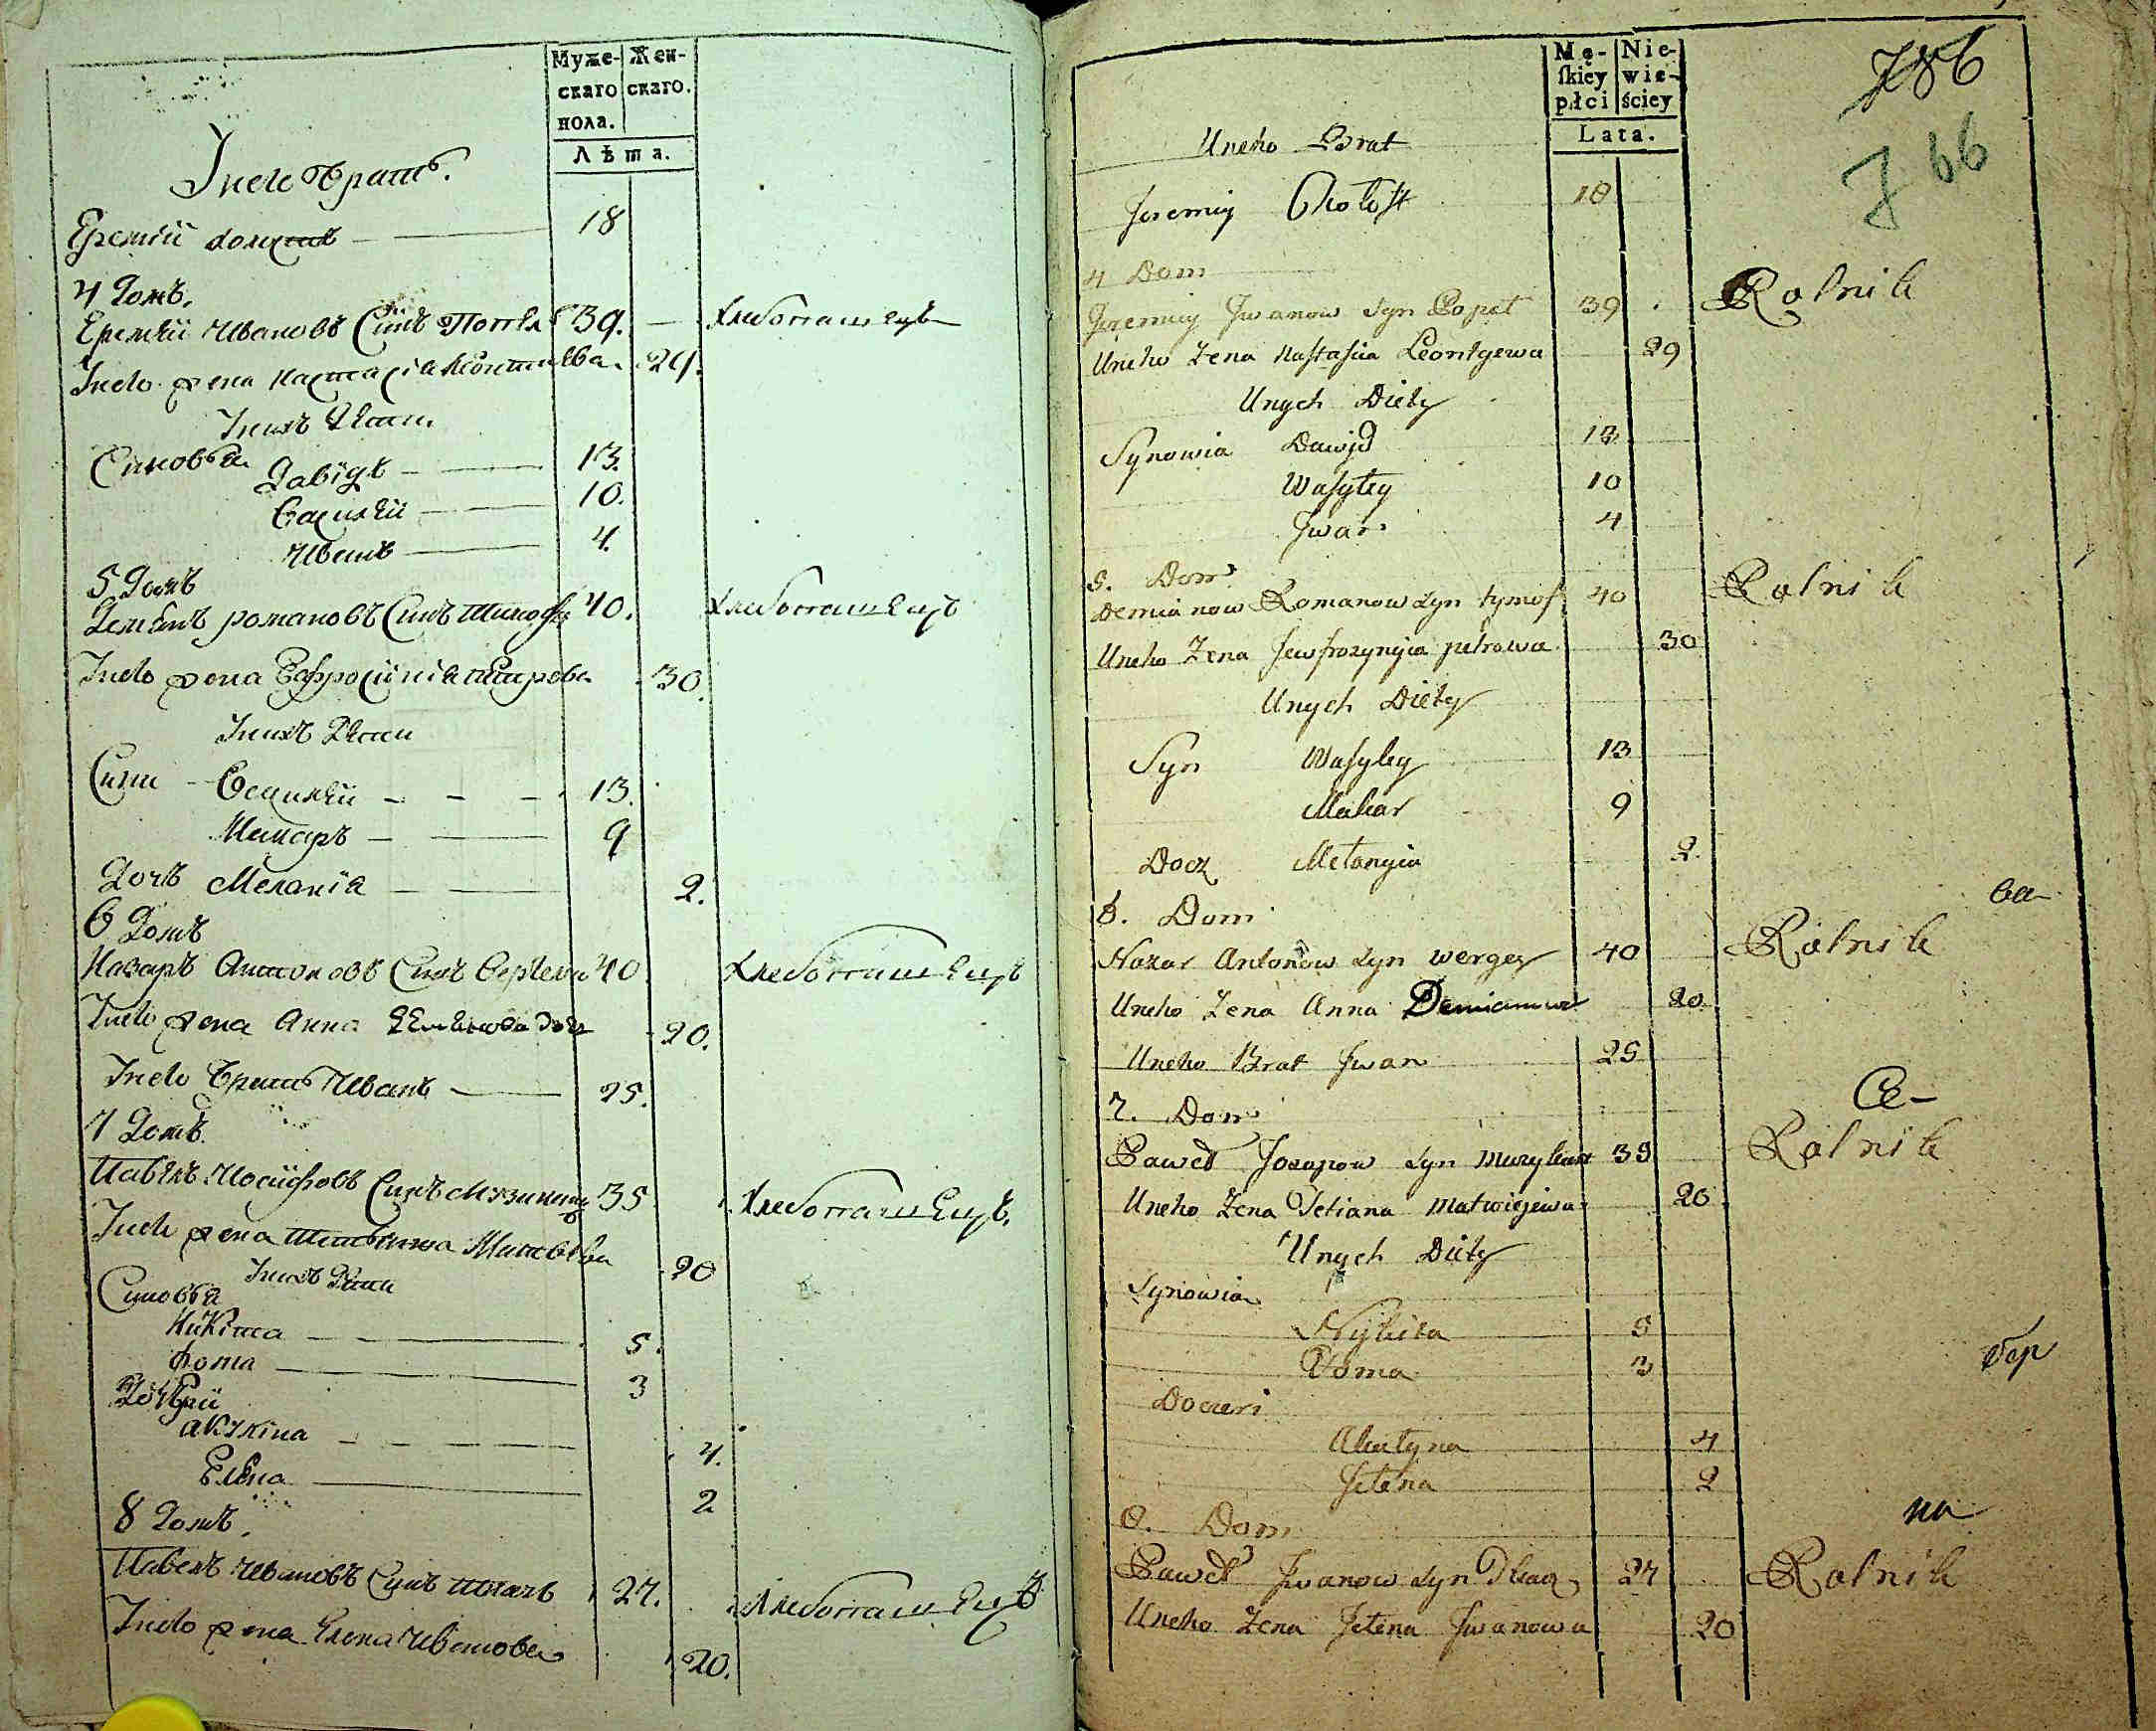 Муже-
скаго
пола.
Жен-
скаго.
Лѣта.
У него братъ.
Еремѣй холостъ 18
4 Домъ.
Еремѣй Ивановъ Синъ Попел 39. Хлебопашецъ
У него жена Настасіа Леонтиева. 29.
У нихъ Дѣти
Синовѣа Давідъ 13.
Василѣй 10.
Иванъ 4.
5 Домъ
Демьянъ романовъ Синъ тимофѣ 40. Хлебопашецъ
У него жена Евфросиніа петрова 30.
У нихъ Дѣти
Сини Василѣй 13.
Макаръ 9
Дочъ Меланіа 2.
6 Домъ
Назаръ Антоновъ Синъ Вергей 40. Хлебопашецъ
У него жена Анна Демьянова 20.
У него братъ Иванъ 25.
7 Домъ.
Павелъ Иосифовъ Синъ Музика 35. Хлебопашецъ.
У него жена Татьяна Матвѣева 20
У нихъ Дѣти
Синовѣа
Никита 5.
Фома 3
Дочѣри
Акулина 4.
Елѣна 2
8 Домъ.
Павелъ Ивановъ Синъ ткачъ 27. Хлебопашецъ
У него жена Елена Иванова 20.
Mę-
skiey
płci
Nie-
wie-
ściey
Lata.
786
766
Uneho Brat
Jeremiy Chołost 18
4 Dom
Jeremiy Jwanow Syn Popel 39 Rolnik
Uneho Zena Nastasiia Leontyewa 29
Unych Diety
Synowia Dawyd 13
Wasyley 10
Jwan 4
5. Dom
Demianow Romanow Syn tymof 40 Rolnik
Uneho Zena Jewfrozynyia petrowa 30
Unych Diety
Syn Wasyley 13
Makar 9
Docz Mełanyia 2.
ва
6. Dom
Nazar Antonow Syn wergey 40 Rolnik
Uneho Zena Anna Demianowa 20.
Uneho Brat Jwan 25
7. Dom
Се-
Paweł Jozapow Syn Muzyka 35 Rolnik
Uneho Zena Tetiana Matwiejewa 20.
Unych Diety
Synowia
Nykita 5
Foma 3
вер
Doczeri
Akułyna 4
Jełena 2
8. Dom
на
Paweł Jwanow Syn Tkacz 27 Rolnik
Uneho Zena Jełena Jwanowa 20